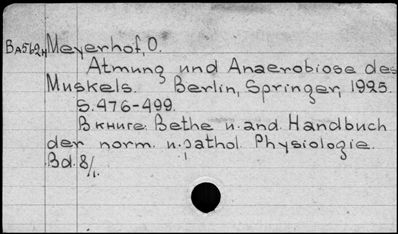 Ва562н Meyerhof, O.
Atmung und Anaerobiose des
Muskels. Berlin, Springer, 1925.
S. 476-499.
В книге: Bethe u. and. Handbuch
der norm. u. pathol. Physiologie.
Bd. 8/1.